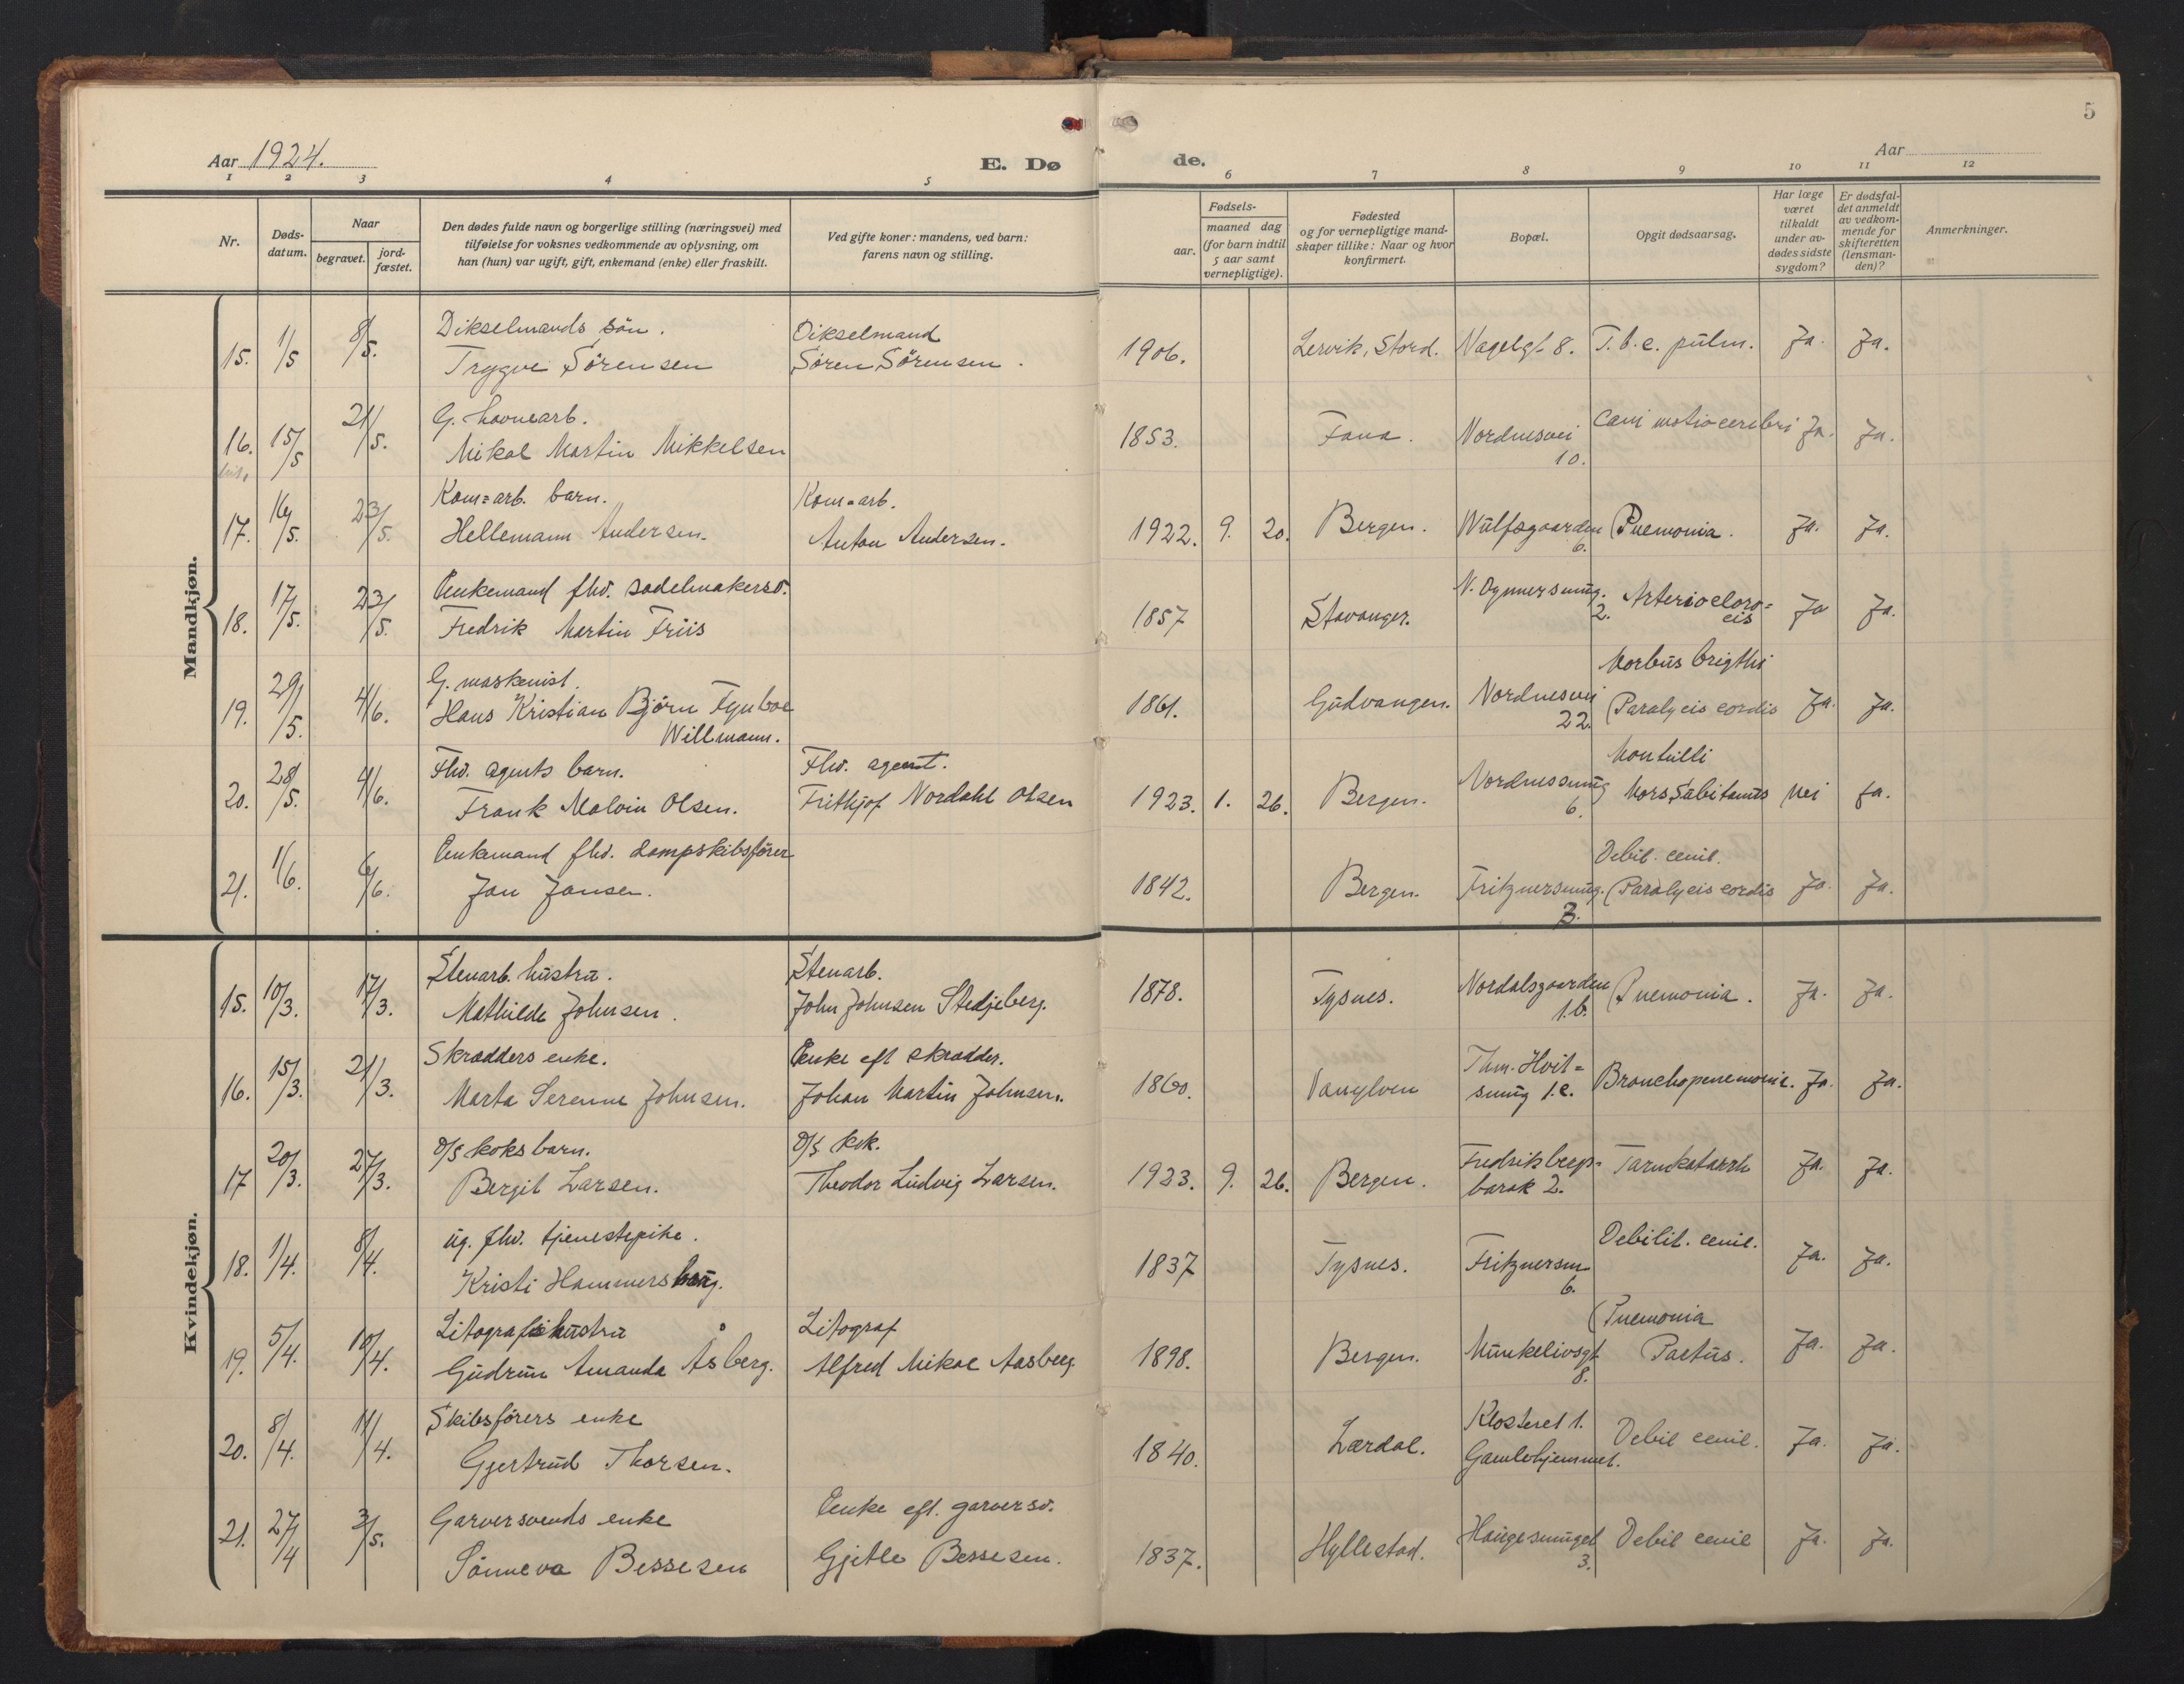 5
Aar 1924.
E. Dø
de.
Aar
1 2 3 4 5 6 7 8 9 10 11 12
Nr.
Døds-
datum.
Naar
begravet.
jord-
fæstet.
Den dødes fulde navn og borgerlige stilling (næringsvei) med
tilføielse for voksnes vedkommende av oplysning, om
han (hun) var ugift, gift, enkemand (enke) eller fraskilt.
Ved gifte koner: mandens, ved barn:
farens navn og stilling.
Fødsels-
aar.
maaned dag
(for barn indtil
5 aar samt
vernepligtige).
Fødested
og for vernepligtige mand-
skaper tillike: Naar og hvor
konfirmert.
Bopæl.
Opgit dødsaarsag.
Har læge
været
tilkaldt
under av-
dødes sidste
sygdom?
Er dødsfal-
det anmeldt
av vedkom-
mende for
skifteretten
(lensman-
den)?
Anmerkninger.
Mandkjøn.
Dikselmands sön. Dikselmand
15. 1/5 8/5. Trygve Sörensen Sören Sörensen. 1906. Lervik, Stord. Nagelgt 8. T.b.c. pulm. Ja. Ja.
G. havnearb.
16. 15/5 21/5. Mikal Martin Mikkelsen 1853. Fana. Nordnesvei Ja. Ja.
10.
Kom=arb. barn. Kom=arb.
17. 16/5. 23/5. Hellemann Andersen. Anton Andersen. 1922. 9. 20. Bergen. Wulfsgaarden Pnemonia. Ja. Ja.
6.
Enkemand fhv. sadelmakersv.
18. 17/5. 23/5. Fredrik Martin Friis 1857 Stavanger. 2. Arterioclero= Ja Ja.
cis
G. maskenist. Morbus brigthi
19. 29/5. 4/6. Hans Kristian Björn Fynboe 1861. Gudvangen. Nordnesvei Paralycis cordis Ja. Ja.
Willmann. 22.
Fhv. agents barn. Fhv. agent.
20. 28/5. 4/6. Frank Malvin Olsen. Frithjof Nordahl Olsen 1923. 1. 26. Bergen. Nordnessmug Mors Subitanus Nei Ja.
6.
Enkemand fhv. dampskibsförer Debil. cenil.
21. 1/6. 6/6. Jan Jansen. 1842. Bergen. Fritznersmug. Paralycis cordis Ja. Ja.
3.
Kvindekjøn.
Stenarb. hustru. Stenarb.
15. 10/3. 17/3. Mathilde Johnsen. John Johnsen Stedjeberg. 1878. Tysnes. Nordalsgaarden Pnemonia. Ja. Ja.
1.b.
Skrædders enke. Enke eft skrædder.
16. 15/3. 21/3. Marta Serenne Johnsen. Johan Martin Johnsen. 1860. Vanylven Thm. Hvit=
smug 1.c. Bronchopenemonie. Ja. Ja.
D/S koks barn. D/S kok.
17 20/3. 27/3. Bergit Larsen. Theodor Ludvig Larsen. 1923. 9. 26. Bergen. Fredriksberg-
barak 2. Tarmkatarrh Ja. Ja.
ug. fhv. tjenestepike.
18. 1/4. 8/4. Kristi Hammershaug. 1837 Tysnes. Fritznersm Debilit. cenil. Ja. Ja.
6.
Litografs hustru Litograf Pnemonia
19. 5/4. 10/4. Gudrun Amanda Åsberg. Alfred Mikal Aasberg 1898. Bergen. Munkelivsgt Partus. Ja. Ja.
8.
Skibsförers enke Klosteret 1.
20. 8/4. 11/4. Gjertrud Thorsen. 1840. Lærdal. Gamlehjemmet. Debil cenil. Ja. Ja.
Garversvends enke Enke eft. garversv.
21. 27/4 3/5. Sönneva Bessesen Gjetle Bessesen. 1837. Hyllestad. Haugesmuget Debil cenil Ja. Ja.
3.